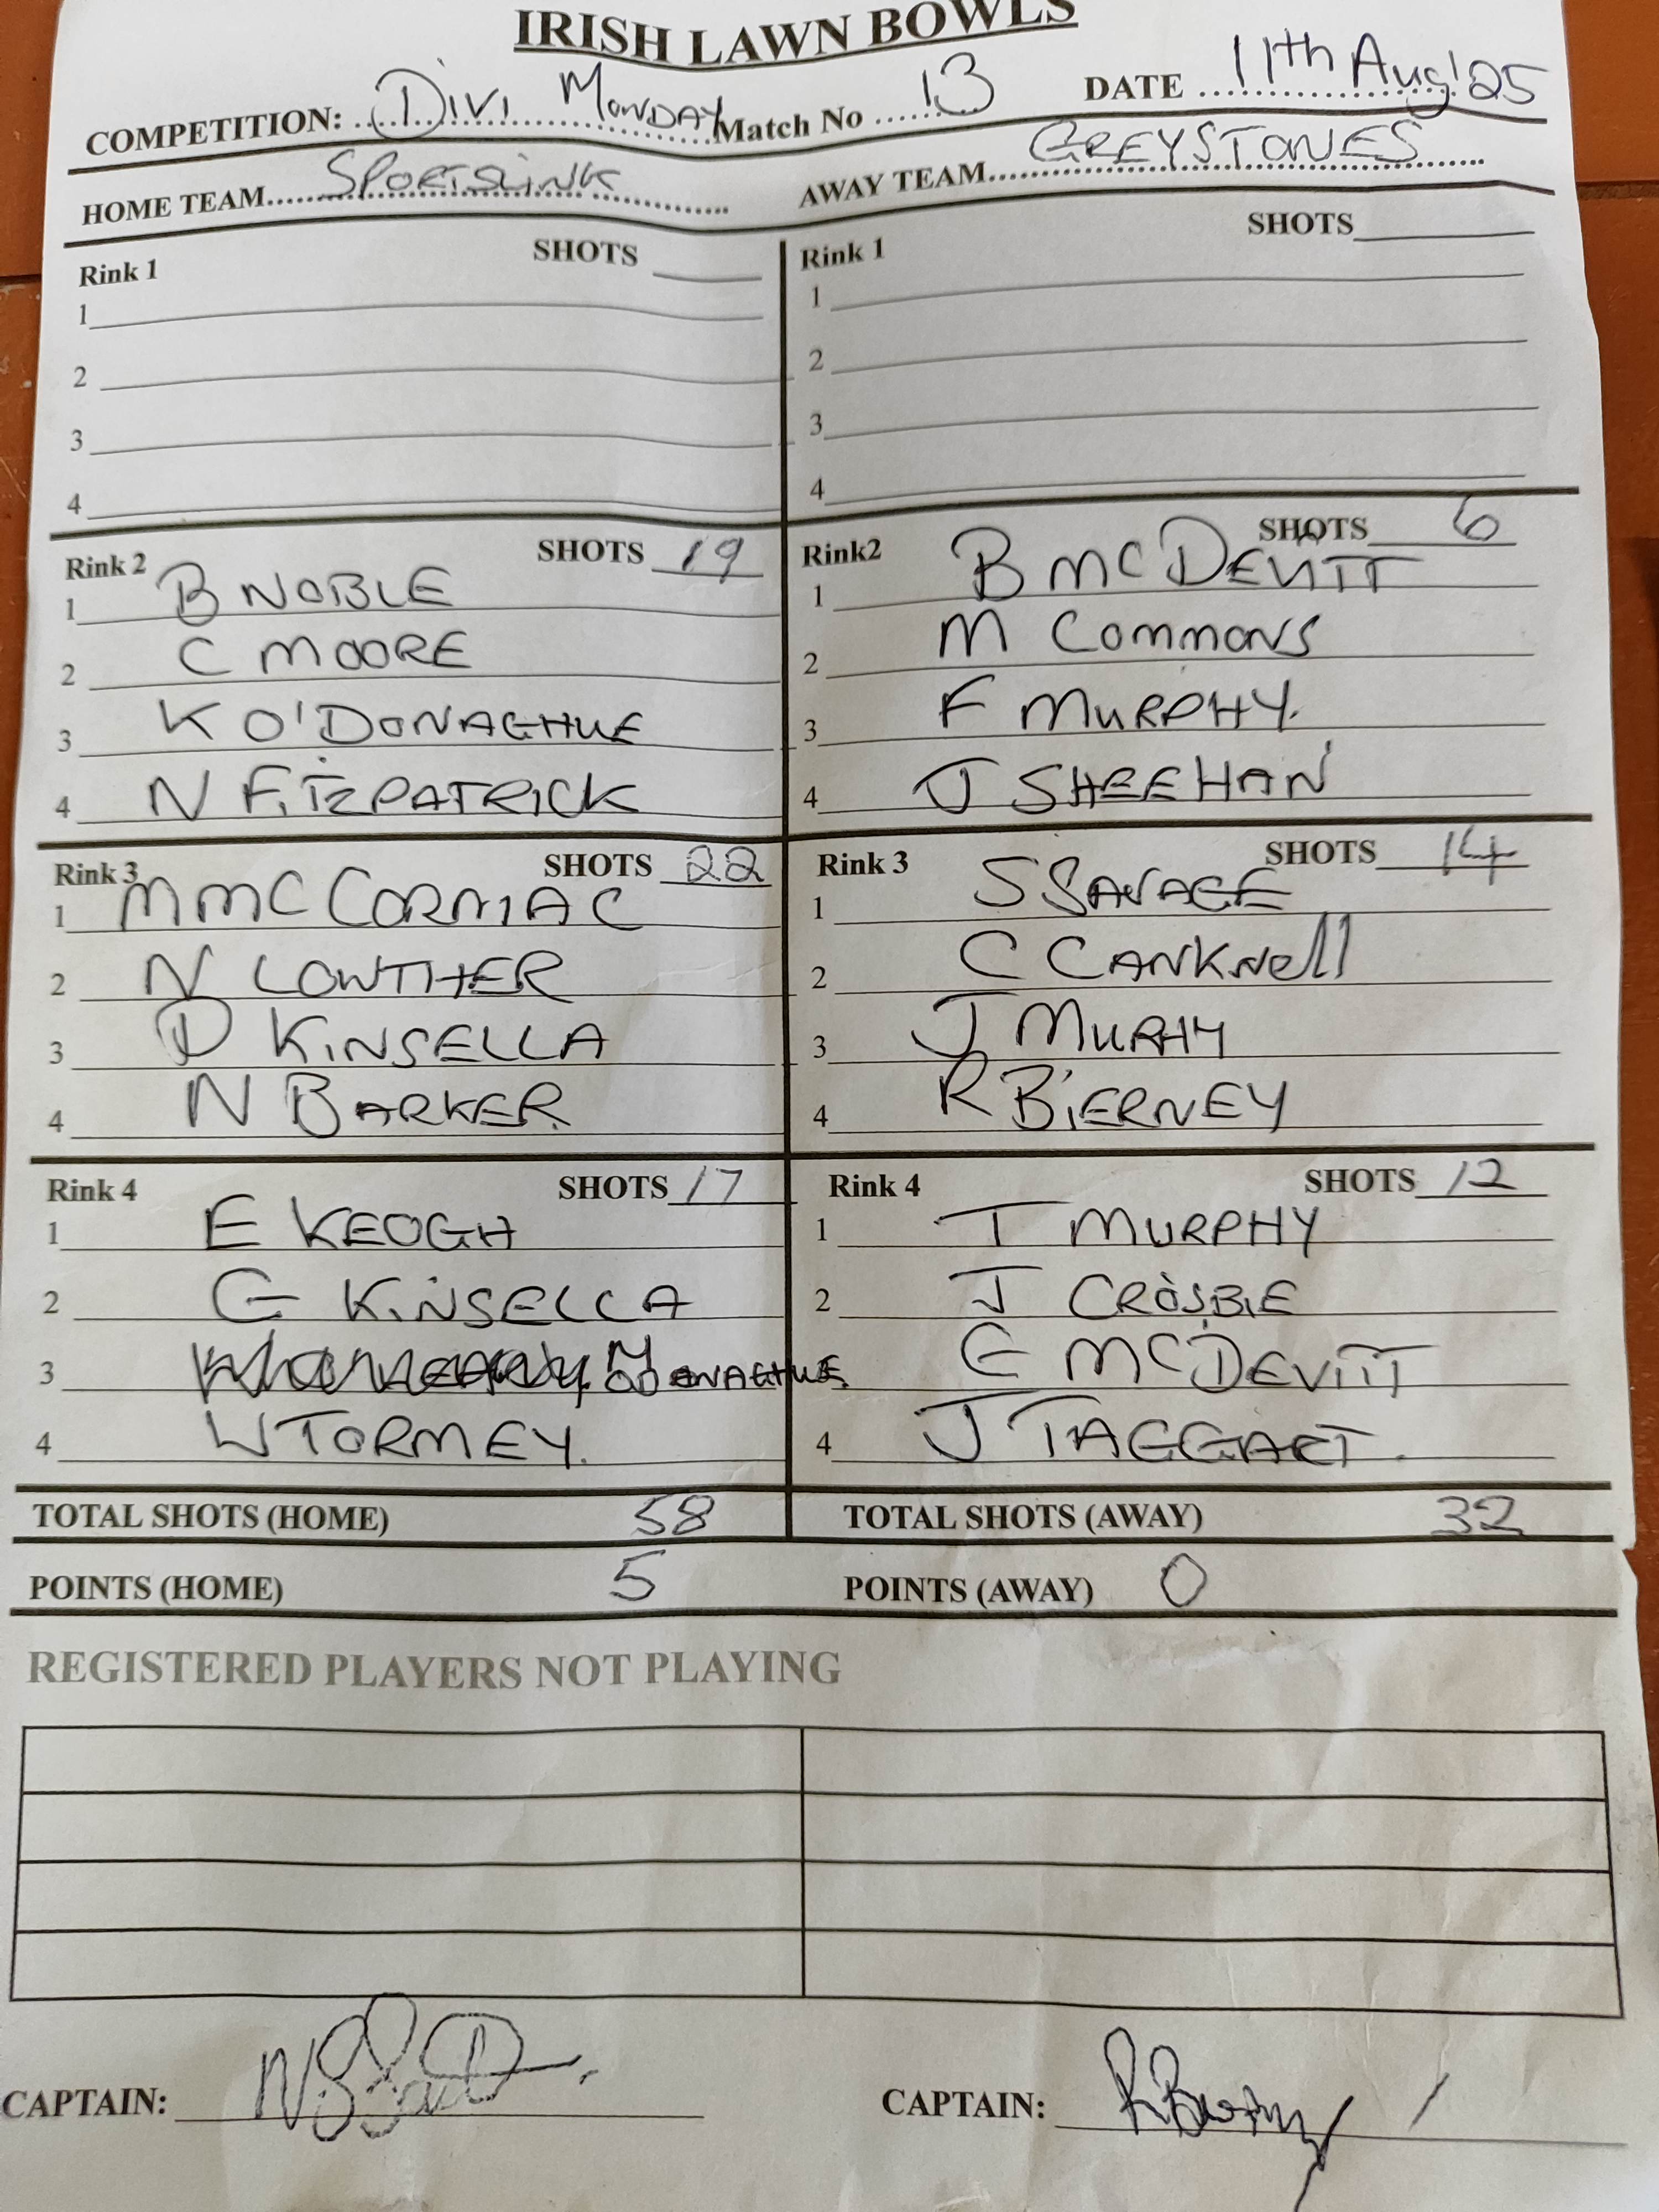 IRISH LAWN BOWLS
COMPETITION: DIV1 MONDAY Match No 13 DATE 11th Aug'25
HOME TEAM SPORTSLINK AWAY TEAM GREYSTONES
Rink 1 SHOTS
1
2
3
4
Rink 1 SHOTS
1
2
3
4
Rink 2 SHOTS 19
1 B NOBLE
2 C MOORE
3 K O'DONAGHUE
4 N FITZPATRICK
Rink2 SHOTS 6
1 B MCDEVITT
2 M COMMONS
3 F MURPHY.
4 J SHEEHAN
Rink 3 SHOTS 22
1 M MCCORMAC
2 N LOWTHER
3 D KINSELLA
4 N BARKER.
Rink 3 SHOTS 14
1 S SAVAGE
2 C CANKNell
3 J MURHY
4 R BIERNEY
Rink 4 SHOTS 17
1 E KEOGH
2 G KINSELLA
3 M ODONAGHUE
4 W TORMEY.
Rink 4 SHOTS 12
1 T MURPHY
2 J CROSBIE
3 G MCDEVITT
4 J TAGGART.
TOTAL SHOTS (HOME) 58 TOTAL SHOTS (AWAY) 32
POINTS (HOME) 5 POINTS (AWAY) 0
REGISTERED PLAYERS NOT PLAYING
CAPTAIN: CAPTAIN: